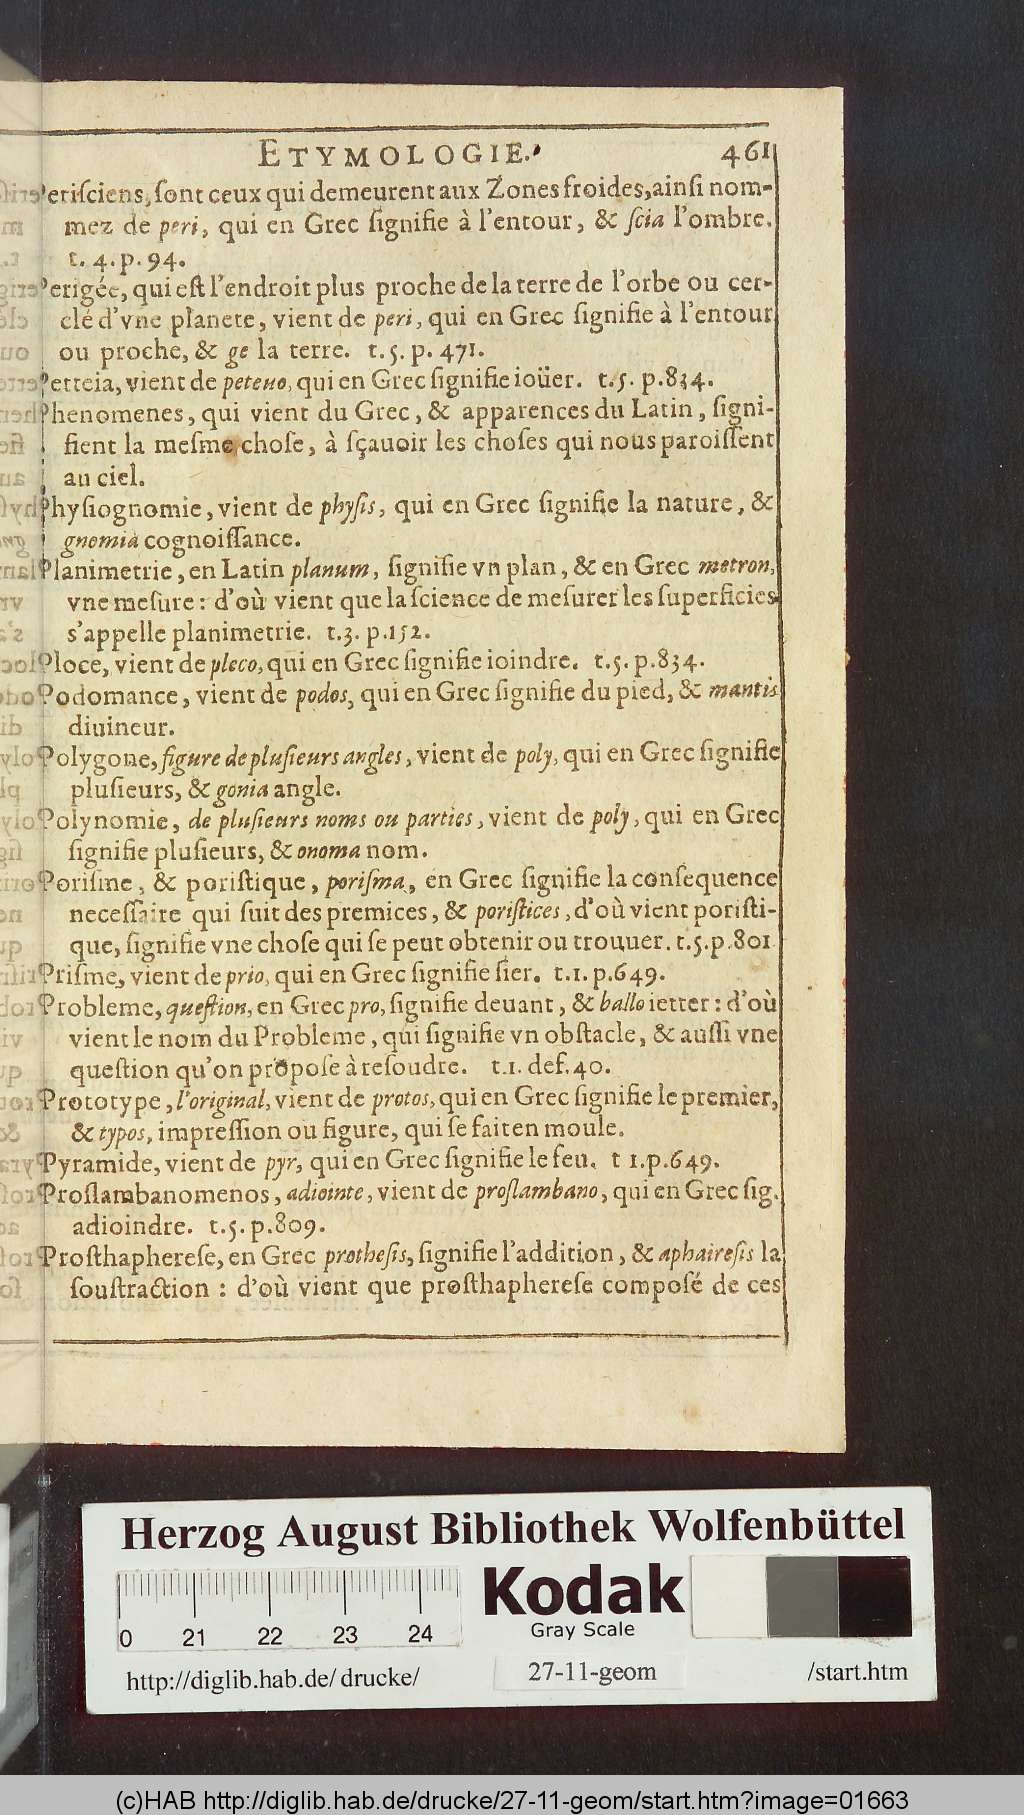 ETYMOLOGIE. 461
Periſciens, ſont ceux qui demeurent aux Zones froides, ainſi nom-
mez de peri, qui en Grec ſignifie à l'entour, & ſcia l'ombre.
t. 4. p. 94.
Perigée, qui eſt l'endroit plus proche de la terre de l'orbe ou cer-
cle d'vne planete, vient de peri, qui en Grec ſignifie à l'entour
ou proche, & ge la terre. t. 5. p. 471.
Petteia, vient de peteuo, qui en Grec ſignifie ioüer. t. 5. p. 834.
Phenomenes, qui vient du Grec, & apparences du Latin, ſigni-
fient la meſme choſe, à ſçauoir les choſes qui nous paroiſſent
au ciel.
Phyſiognomie, vient de phyſis, qui en Grec ſignifie la nature, &
gnomia cognoiſſance.
Planimetrie, en Latin planum, ſignifie vn plan, & en Grec metron,
vne meſure: d'où vient que la ſcience de meſurer les ſuperficies
s'appelle planimetrie. t. 3. p. 152.
Ploce, vient de pleco, qui en Grec ſignifie ioindre. t. 5. p. 834.
Podomance, vient de podos, qui en Grec ſignifie du pied, & mantis
diuineur.
Polygone, figure de pluſieurs angles, vient de poly, qui en Grec ſignifie
pluſieurs, & gonia angle.
Polynomie, de pluſieurs noms ou parties, vient de poly, qui en Grec
ſignifie pluſieurs, & onoma nom.
Poriſme, & poriſtique, poriſma, en Grec ſignifie la conſequence
neceſſaire qui ſuit des premices, & poriſtices, d'où vient poriſti-
que, ſignifie vne choſe qui ſe peut obtenir ou trouuer. t. 5. p. 801
Priſme, vient de prio, qui en Grec ſignifie ſier. t. 1. p. 649.
Probleme, queſtion, en Grec pro, ſignifie deuant, & ballo ietter: d'où
vient le nom du Probleme, qui ſignifie vn obſtacle, & auſſi vne
queſtion qu'on propoſe à reſoudre. t. 1. def. 40.
Prototype, l'original, vient de protos, qui en Grec ſignifie le premier,
& typos, impreſſion ou figure, qui ſe fait en moule.
Pyramide, vient de pyr, qui en Grec ſignifie le feu. t 1. p. 649.
Proſlambanomenos, adiointe, vient de proſlambano, qui en Grec ſig.
adioindre. t. 5. p. 809.
Proſthaphereſe, en Grec protheſis, ſignifie l'addition, & aphaireſis la
ſouſtraction : d'où vient que proſthaphereſe compoſé de ces
Herzog August Bibliothek Wolfenbüttel
Kodak
Gray Scale
0 21 22 23 24
http://diglib.hab.de/drucke/ 27-11-geom /start.htm
(c)HAB http://diglib.hab.de/drucke/27-11-geom/start.htm?image=01663